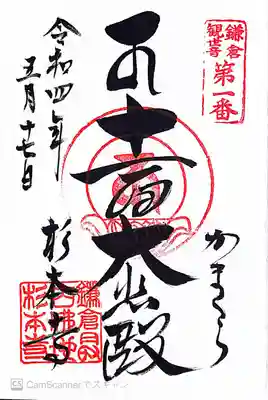 鎌倉
観世音
第一番
かまくら
十一面大悲殿
杉本寺
令和四年
五月十七日
杉本寺
CS CamScannerでスキャン